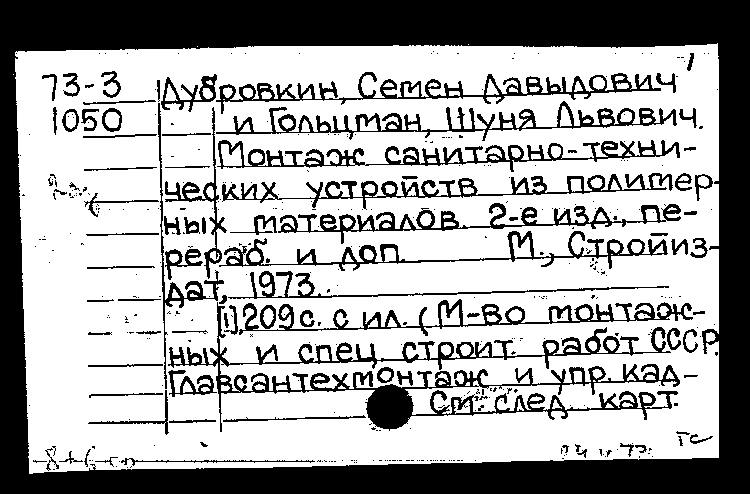 73-3 Дубровкин, Семен Давыдович
1050 и Гольцман, Шуня Львович.
Монтаж санитарно-техни-
ческих устройств из полимер-
ных материалов. 2-е изд., пе-
рераб. и доп. М., Стройиз-
дат, 1973.
[1], 209 с. с ил. (М-во монтаж-
ных и спец. строит. работ СССР.
Главсантехмонтаж и упр. кад-
См. след. карт.